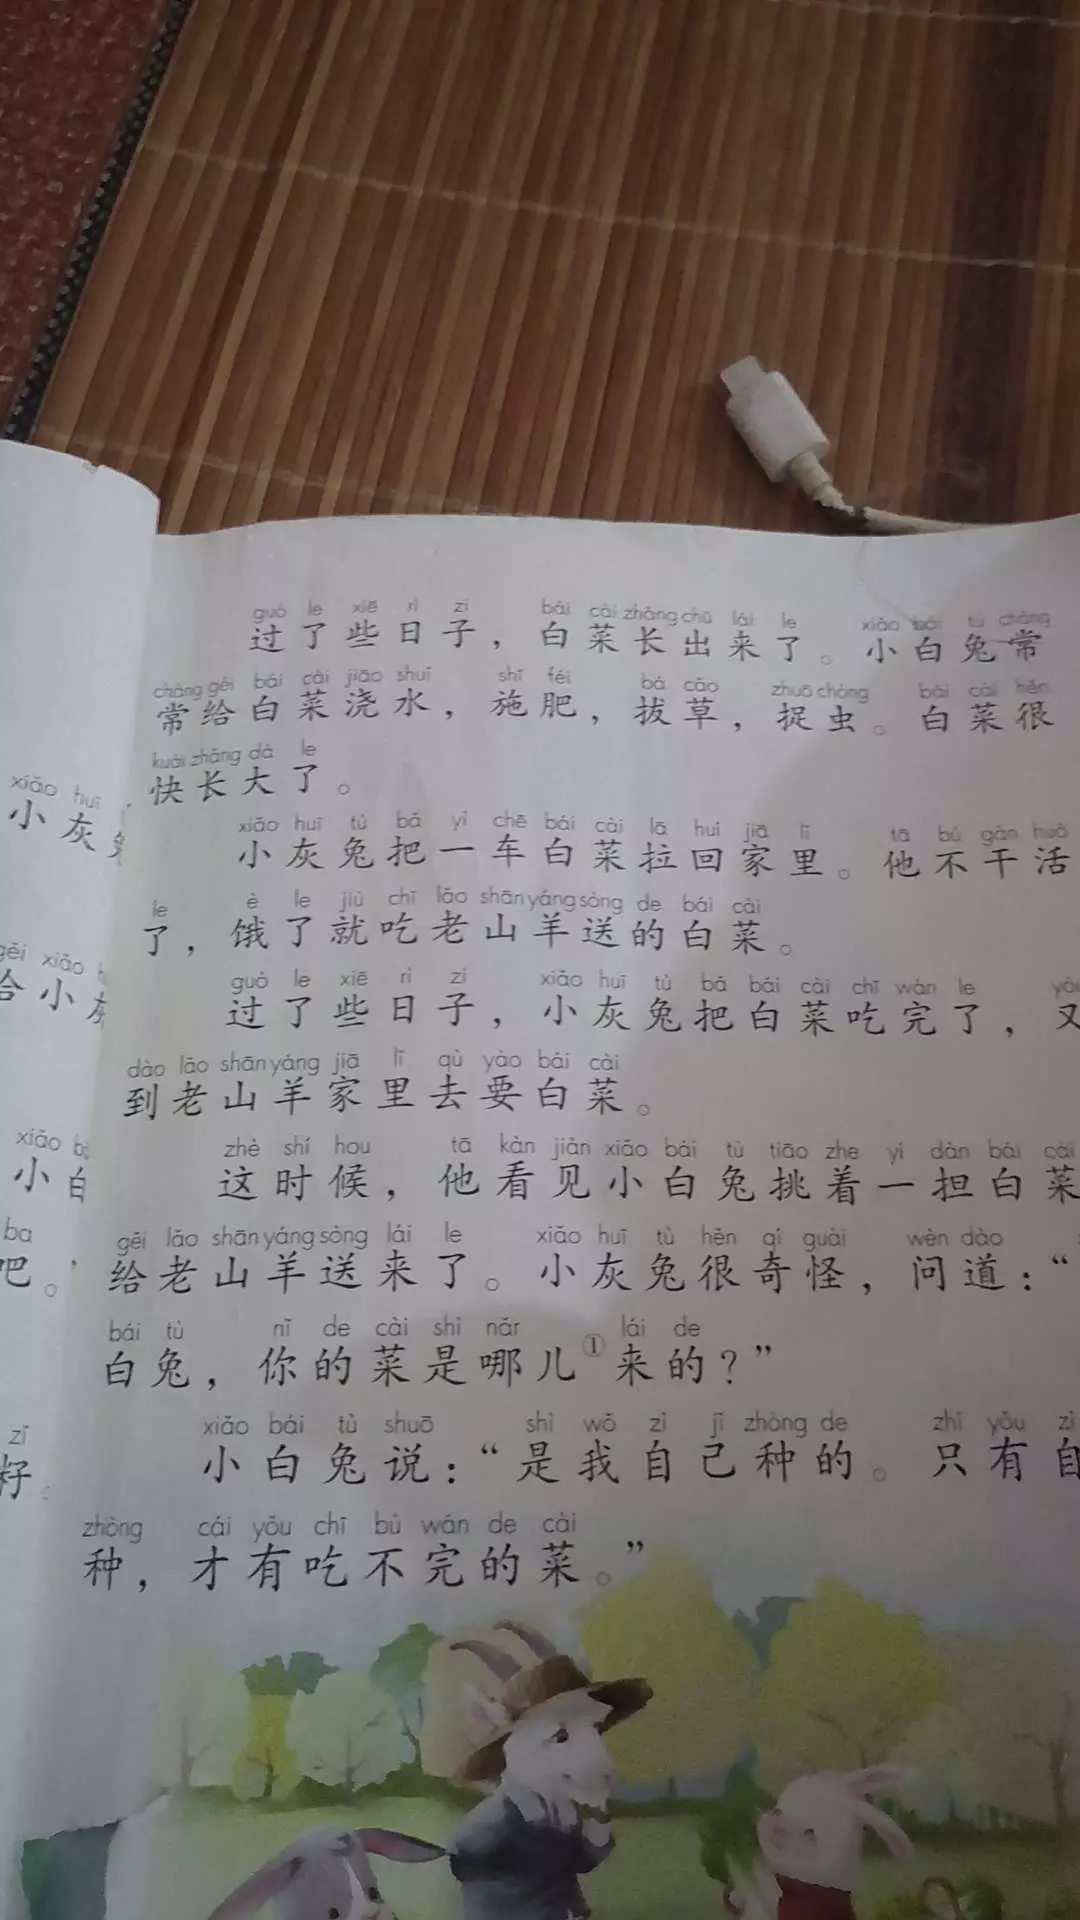 guò le xiē rì zi bái cài zhǎng chū lái le xiǎo bái tù cháng
过了些日子，白菜长出来了。小白兔常
cháng gěi bái cài jiāo shuǐ shī féi bá cǎo zhuō chóng bái cài hěn
常给白菜浇水，施肥，拔草，捉虫。白菜很
kuài zhǎng dà le
快长大了。
xiǎo huī tù bǎ yì chē bái cài lā huí jiā lǐ tā bú gàn huó
小灰兔把一车白菜拉回家里。他不干活
le è le jiù chī lǎo shān yáng sòng de bái cài
了，饿了就吃老山羊送的白菜。
guò le xiē rì zi xiǎo huī tù bǎ bái cài chī wán le yòu
过了些日子，小灰兔把白菜吃完了，又
dào lǎo shān yáng jiā lǐ qù yào bái cài
到老山羊家里去要白菜。
zhè shí hou tā kàn jiàn xiǎo bái tù tiāo zhe yí dàn bái cài
这时候，他看见小白兔挑着一担白菜
gěi lǎo shān yáng sòng lái le xiǎo huī tù hěn qí guài wèn dào
给老山羊送来了。小灰兔很奇怪，问道：“
bái tù nǐ de cài shì nǎr lái de
白兔，你的菜是哪儿①来的？”
xiǎo bái tù shuō shì wǒ zì jǐ zhòng de zhǐ yǒu zì
小白兔说：“是我自己种的。只有自
zhòng cái yǒu chī bù wán de cài
种，才有吃不完的菜。”
xiǎo huī
小灰
gěi xiǎo
给小灰
xiǎo
小白
ba
吧。”
zǐ
籽。